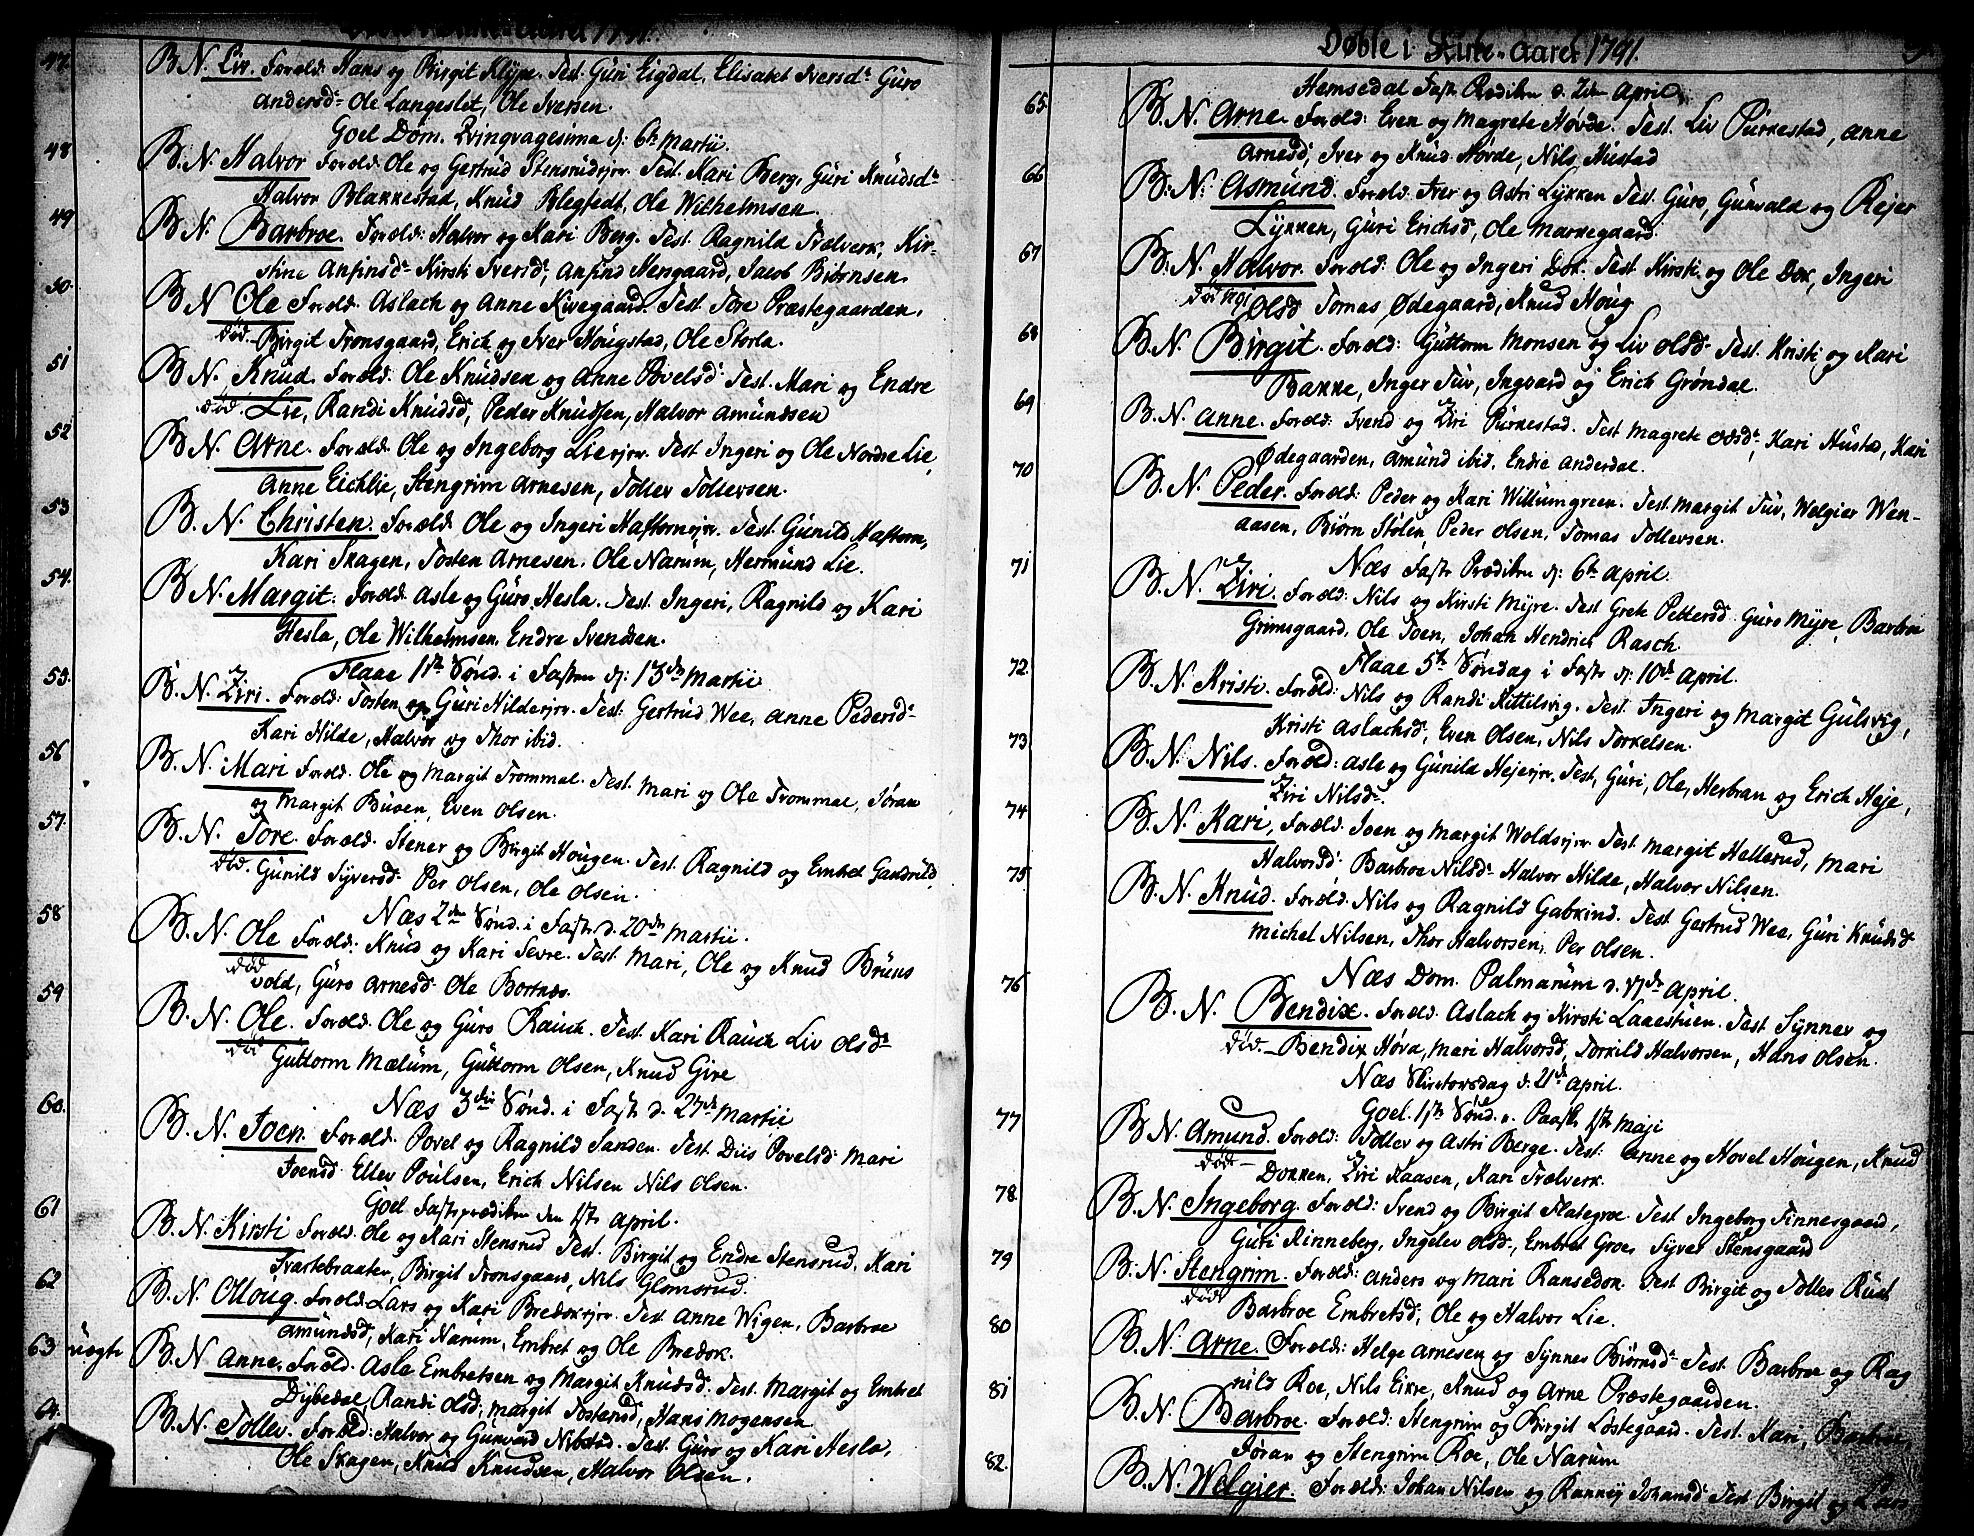 47. B. N. Liv. Foræld: Hans og Birgit Klype. Test: Guri Eigdal, Elisabet Iversd: Guro
Andersd: Ole Langeslet, Ole Iversen.
Goel Dom. Qvinqvagesima d: 6te Martii.
48 B. N. Halvor Foræld: Ole og Gertrud Stensrudejer. Test. Kari Berg, Guri Knudsd:
Halvor Blakkestad, Knud Ole Wilhelmsen.
49 B N. Barbroe. Foræld: Halvor og Kari Berg. Test. Ragnild Trælverk, Kir-
stine Anfinsd: Kirsti Iversd: Anfind Hengaard, Jacob Biørnsen.
50. B N Ole Foræld: Aslach og Anne Kirkegaard. Test. Tore Præstegaarden,
død. Birgit Tronsgaard, Erich og Iver Hougstad, Ole Storla.
51 B N. Knud. Foræld: Ole Knudsen og Anne Povelsd: Test. Mari og Endre
død. Lie, Randi Knudsd, Peder Knudsen, Halvor Amundsen
52 B N. Arne. Foræld: Ole og Ingeborg Lieejer. Test Ingeri og Ole Nordre Lie,
Anne Eichlie, Stengrim Arnesen, Tollev Tollevsen.
53 B. N. Christen. Foræld: Ole og Ingeri Haftornejer. Test. Gunild Haftorn,
Kari Skagen, Tosten Arnesen. Ole Narum, Hermund Lie.
54. B N. Margit: Foræld: Asle og Guro Hesla. Test. Ingeri, Ragnild og Kari
Hesla, Ole Wilhelmsen. Endre Svendsen.
Flaae 1ste Sønd. i Fasten d: 13de Martii
55. B. N. Ziri. Foræld: Tosten og Guri Hildeejer. Test: Gertrud Wee, Anne Pedersd:
Kari Hilde, Halvor og Thor ibid.
56 B. N. Mari Foræld: Ole og Margit Trommal. Test. Mari og Ole Trommal, Jøran
og Margit Buoen, Even Olsen.
57. B. N. Tore. Foræld: Stener og Birgit Hougen. Test. Ragnild og Embret Gandrud,
død. Gunild Syversd: Per Olsen, Ole Olsen.
Næs 2den Sønd. i Faste d. 20de Martii.
58 B. N. Ole Foræld: Knud og Kari Sevre. Test. Mari, Ole og Knud Bruns
død vold, Guro Arnesd: Ole Bortnæs.
59 B. N. Ole. Foræld: Ole og Guro Rauch. Test. Kari Rauch Liv Olsd:
død Guttorm Mælum, Guttorm Olsen, Knud Give
Næs 3die Sønd. i Faste d. 27de Martii
60. B. N. Joen. Foræld: Povel og Ragnild Sanden. Test. Diis Povelsd: Mari
Joensd: Ellev Poulsen, Erich Nilsen Nils Olsen.
Goel Fasteprædiken den 1ste April.
61 B. N. Kirsti Foræld: Ole og Kari Stensrud Test. Birgit og Endre Stensrud, Kari
Svartebraaten, Birgit Tronsgaard, Nils Glomsrud.
62 B. N. Oloug. Foræld: Lars og Kari Bredokejer. Test Anne Wigen, Barbroe
Amundsd, Kari Narum, Embret og Ole Bredok.
63 uægte B N Anne. Foræld: Asle Embretsen og Margit Knudsd: Test. Margit og Embret
Dybedal Randi Olsd: Margit Tostensd, Hans Mogensen
64. B. N. Tollev. Foræld: Halvor og Gunvord Nibstad. Test: Guro og Kari Hesla,
Ole Skagen, Knud Knudsen, Halvor Olsen.
Døbte i Kirke-Aaret 1791.
Hemsedal Faste Prædiken d. 2den April
65. B. N. Arne. Foræld: Even og Magrete Hovde. Test. Liv Purkestad, Anne
Arnesd; Iver og Knud Hovde, Nils Hustad
66 B. N: Asmund. Foræld: Iver og Astri Lykken Test. Guro, Gunvald og Rejer
Lykken, Guri Erichsd, Ole Markegaard.
67 B. N. Halvor. Foræld: Ole og Ingeri Dok. Test. Kirsti og Ole Dok, Ingeri
død Olsd Tomas Ødegaard, Knud Houg
68 B. N. Birgit. Foræld: Guttorm Monsen og Liv Olsd: Test. Kristi og Kari
Bakke, Inger Tuv, Ingvard og Erich Grøndal.
69 B. N. Anne. Foræld: Svend og Ziri Purkestad. Test Magrete Kari Hustad, Kari
Ødegaarden, Amund ibid. Endre Anderdal.
70 B. N. Peder. Foræld: Peder og Kari Willumgreen. Test. Margit Tuv, Welgier Wen-
aasen, Biørn Stølen, Peder Olsen, Tomas Tollevsen.
Næs Faste Prædiken d: 6te April.
71 B. N. Ziri. Foræld: Nils og Kirsti Myre. Test Grete Pettersd: Guro Myre, Barbroe
Grimsgaard, Ole Toen, Johan Hendrich Rasch.
Flaae 5te Søndag i Faste d: 10de April.
72. B. N. Kristi. Foræld: Nils og Randi Kittilsvig. Test. Ingeri og Margit Gulsvig,
Kristi Aslachsd, Even Olsen, Nils Torkelsen.
73 B. N: Nils. Foræld: Asle og Gunild Hejeejer. Test, Guri, Ole, Herbran og Erich Heje,
Ziri Nilsd:.
74 B. N. Kari, Foræld: Joen og Margit Woldsejer Test. Margit Hellerud, Mari
Halvorsd: Barbroe Nilsd: Halvor Hilde, Halvor Nilsen.
75 B. N. Knud. Foræld: Nils og Ragnild Gabkind. Test Gertrud Wee, Guri Knudsd
Michel Nilsen, Thor Halvorsen, Per Olsen.
Næs Dom. Palmarum d. 17de April.
76 B. N. Bendix. Foræld: Aslach og Kirsti Laaestuen. Test Synnev og
død. Bendix Hova, Mari Halvorsd, Torkild Halvorsen, Hans Olsen.
Næs Skiertorsdag d. 21de April.
Goel. 1ste Sønd. e. Paaske 1ste Maji
77 B N. Amund. Foræld: Tollev og Astri Berge. Test: Anne og Hovel Hougen, Knud
død - Dokken, Ziri Kaasen, Kari Trælverk.
78. B N. Ingeborg Foræld: Svend og Birgit Flategroe Test Ingeborg Finnesgaard,
Guri Rinneberg, Ingelev Olsd, Embret Groe, Syver Stensgaard
79 B. N. Stengrim. Foræld: Anders og Mari Ransedok Test Birgit og Tollev Rust
død Barbroe Embretsd: Ole og Halvor Lie.
80 B. N. Arne. Foræld: Helge Arnesen og Synnev Biørnsd: Test. Barbroe og Rag
nild Roe, Nils Eikre, Knud og Arne Præstegaarden.
81 B. N. Barbroe. Foræld: Stengrim og Birgit Løstegaard. Test. Kari, Barbroe,
Jøran og Stengrim Roe, Ole Narum
82. B. N. Welgier. Foræld: Johan Nilsen og Rannej Johansd: Test Birgit og Lars